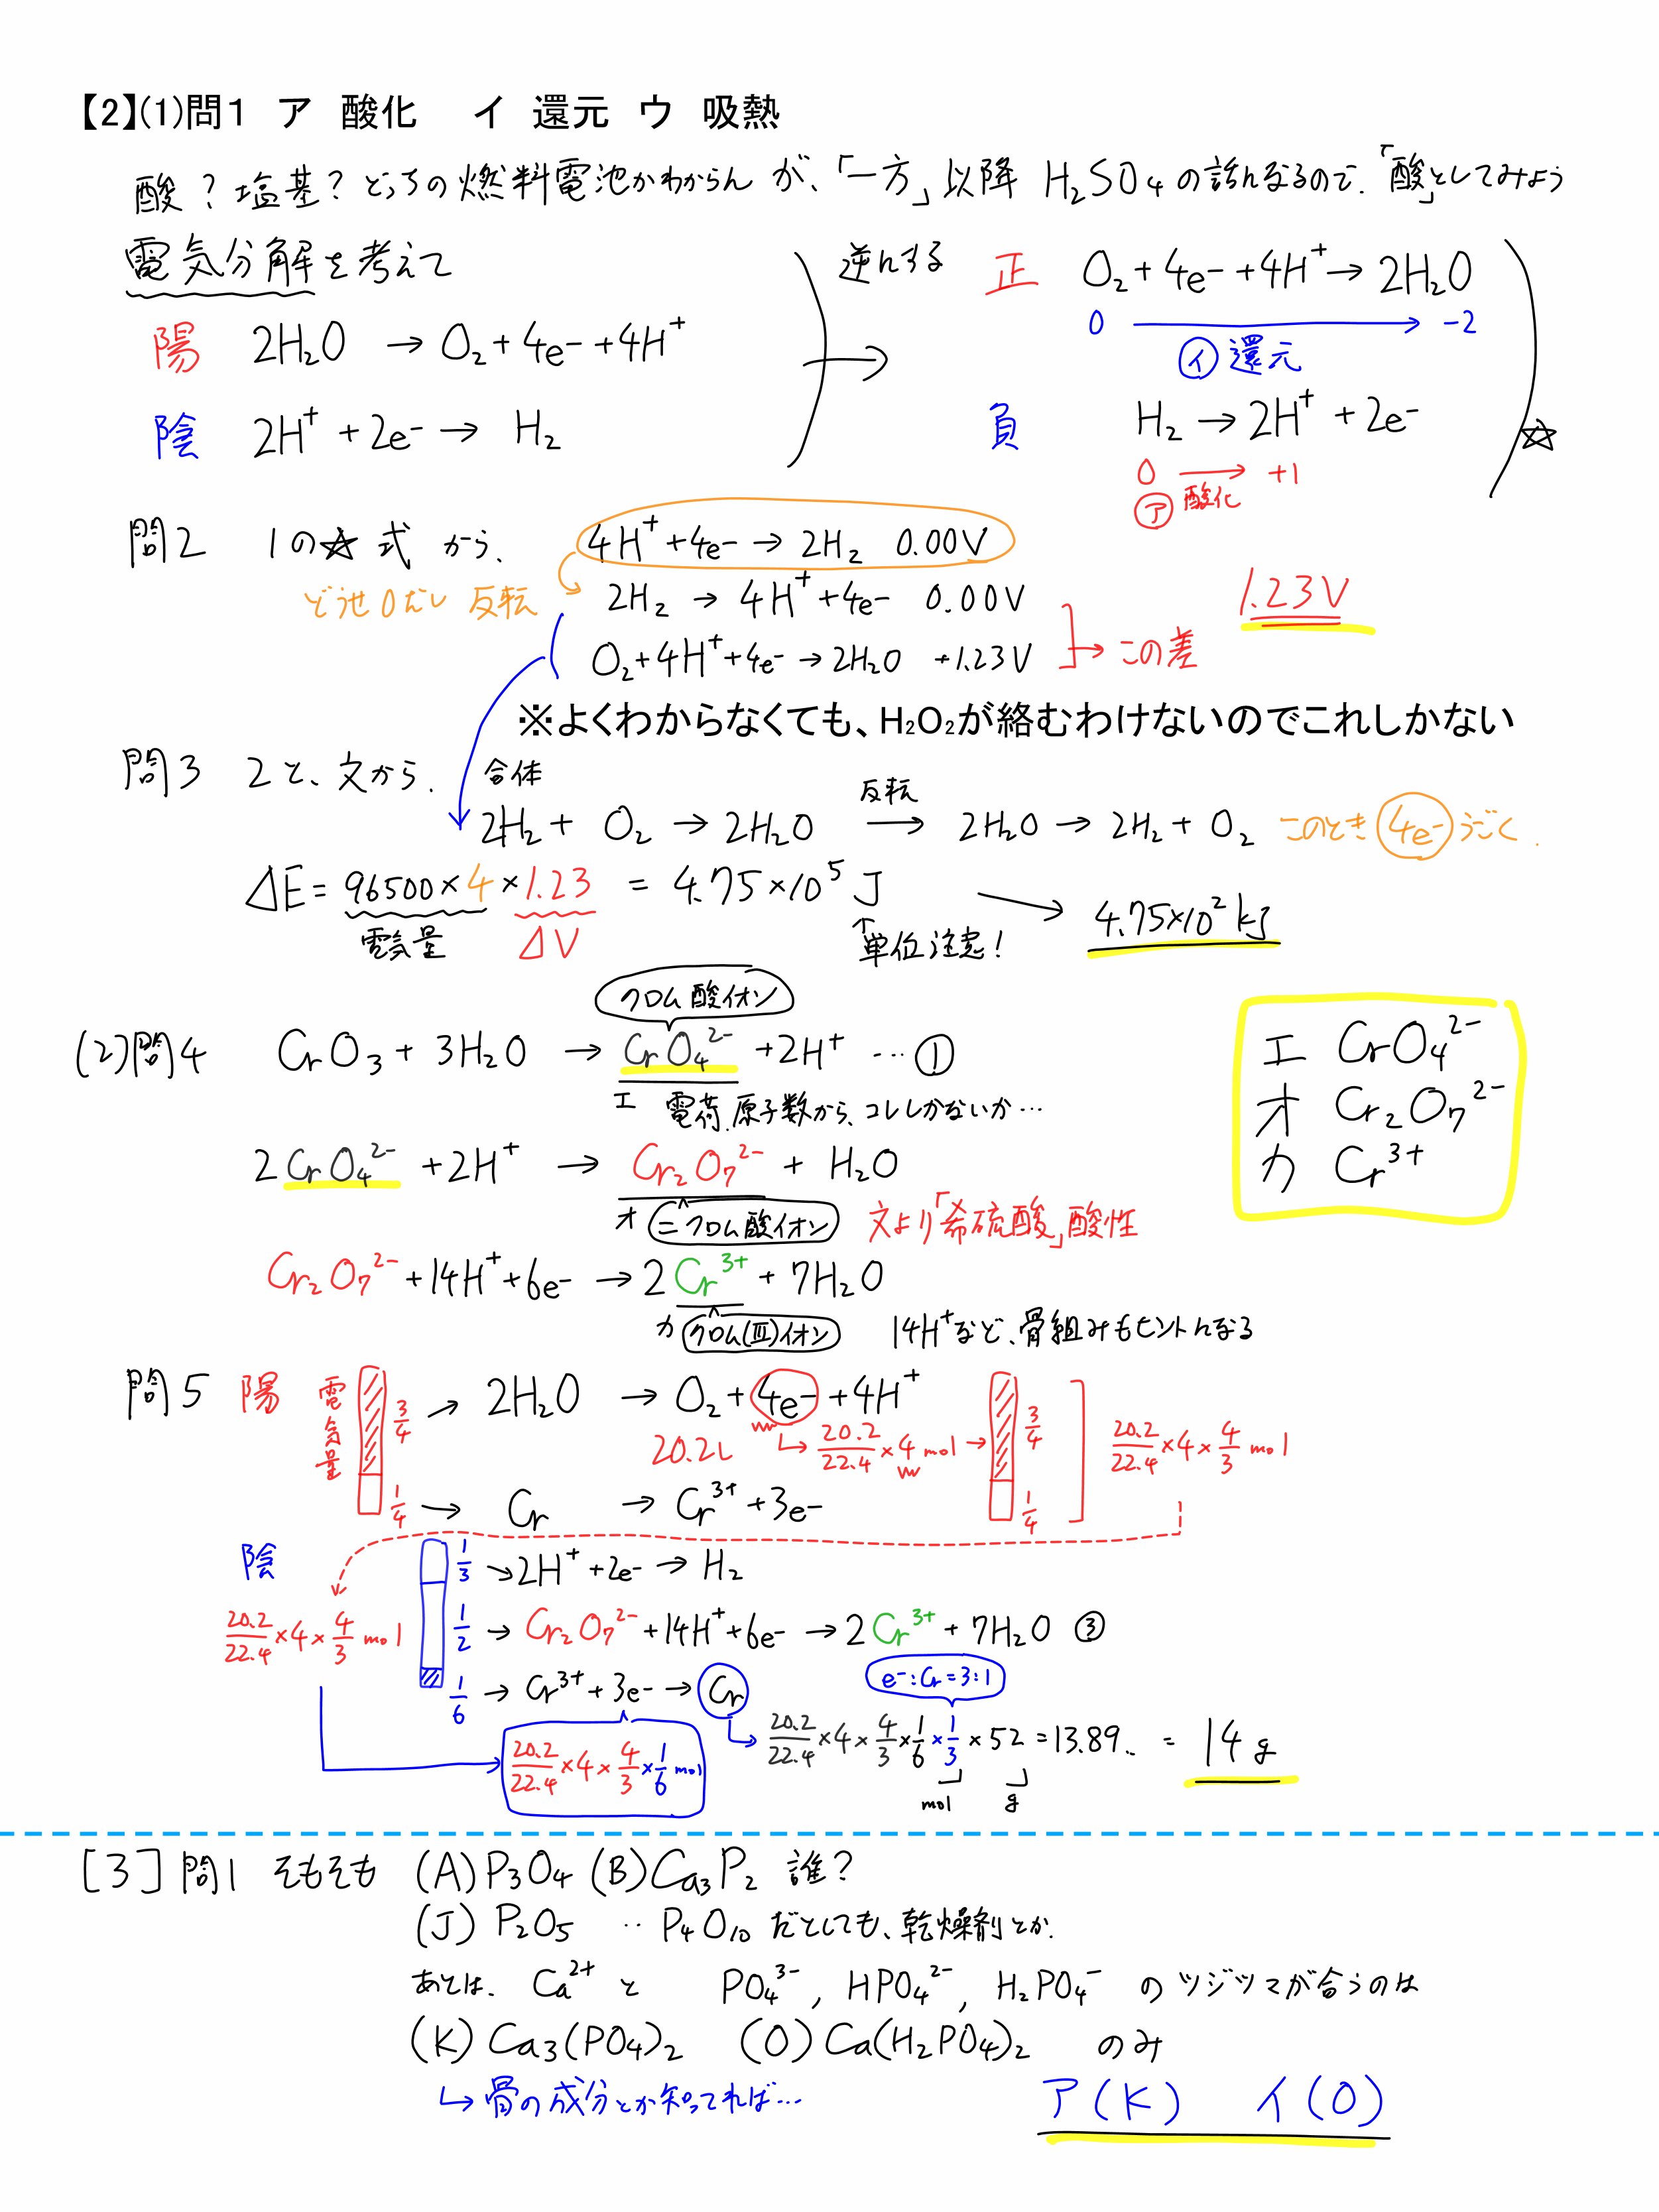 【2】(1)問1 ア 酸化 イ 還元 ウ 吸熱
酸？塩基？どっちの燃料電池かわからんが、「一方」以降 H₂SO₄の話になるので、「酸」としてみよう
電気分解を考えて
陽 2H₂O → O₂ + 4e⁻ + 4H⁺
陰 2H⁺ + 2e⁻ → H₂
逆にする
正 O₂ + 4e⁻ + 4H⁺ → 2H₂O
0 → -2
イ 還元
負 H₂ → 2H⁺ + 2e⁻
☆
0 → +1
ア 酸化
問2 1の☆式から、 4H⁺ + 4e⁻ → 2H₂ 0.00V
どうせ0だし反転 2H₂ → 4H⁺ + 4e⁻ 0.00V
O₂ + 4H⁺ + 4e⁻ → 2H₂O +1.23V
→ この差
1.23V
※よくわからなくても、H₂O₂が絡むわけないのでこれしかない
問3 2と、文から、
合体 2H₂ + O₂ → 2H₂O 反転 → 2H₂O → 2H₂ + O₂ このとき 4e⁻ うごく.
ΔE = 96500 × 4 × 1.23 = 4.75×10⁵ J → 4.75×10² kJ
電気量 ΔV ↑単位注意!
クロム酸イオン
(2)問4 CrO₃ + 3H₂O → CrO₄²⁻ + 2H⁺ … ①
エ 電荷、原子数から、コレしかないか…
2CrO₄²⁻ + 2H⁺ → Cr₂O₇²⁻ + H₂O
オ 二クロム酸イオン 文より「希硫酸」酸性
Cr₂O₇²⁻ + 14H⁺ + 6e⁻ → 2Cr³⁺ + 7H₂O
カ クロム(Ⅲ)イオン 14H⁺など、骨組みもヒントになる
エ CrO₄²⁻
オ Cr₂O₇²⁻
カ Cr³⁺
問5 陽 電気量 3/4 → 2H₂O → O₂ + 4e⁻ + 4H⁺
20.2L ↳ 20.2/22.4 × 4 mol → 3/4 1/4 20.2/22.4 × 4 × 4/3 mol
1/4 → Cr → Cr³⁺ + 3e⁻
陰 1/3 → 2H⁺ + 2e⁻ → H₂
20.2/22.4 × 4 × 4/3 mol 1/2 → Cr₂O₇²⁻ + 14H⁺ + 6e⁻ → 2Cr³⁺ + 7H₂O ③
1/6 → Cr³⁺ + 3e⁻ → Cr e⁻:Cr = 3:1
20.2/22.4 × 4 × 4/3 × 1/6 mol
20.2/22.4 × 4 × 4/3 × 1/6 × 1/3 × 52 = 13.89.. = 14 g
mol g
[3]問1 そもそも (A)P₃O₄ (B)Ca₃P₂ 誰？
(J) P₂O₅ ‥ P₄O₁₀だとしても、乾燥剤とか.
あとは、Ca²⁺と PO₄³⁻, HPO₄²⁻, H₂PO₄⁻ のツジツマが合うのは
(K) Ca₃(PO₄)₂ (O) Ca(H₂PO₄)₂ のみ
↳骨の成分とか知ってれば…
ア(K) イ(O)